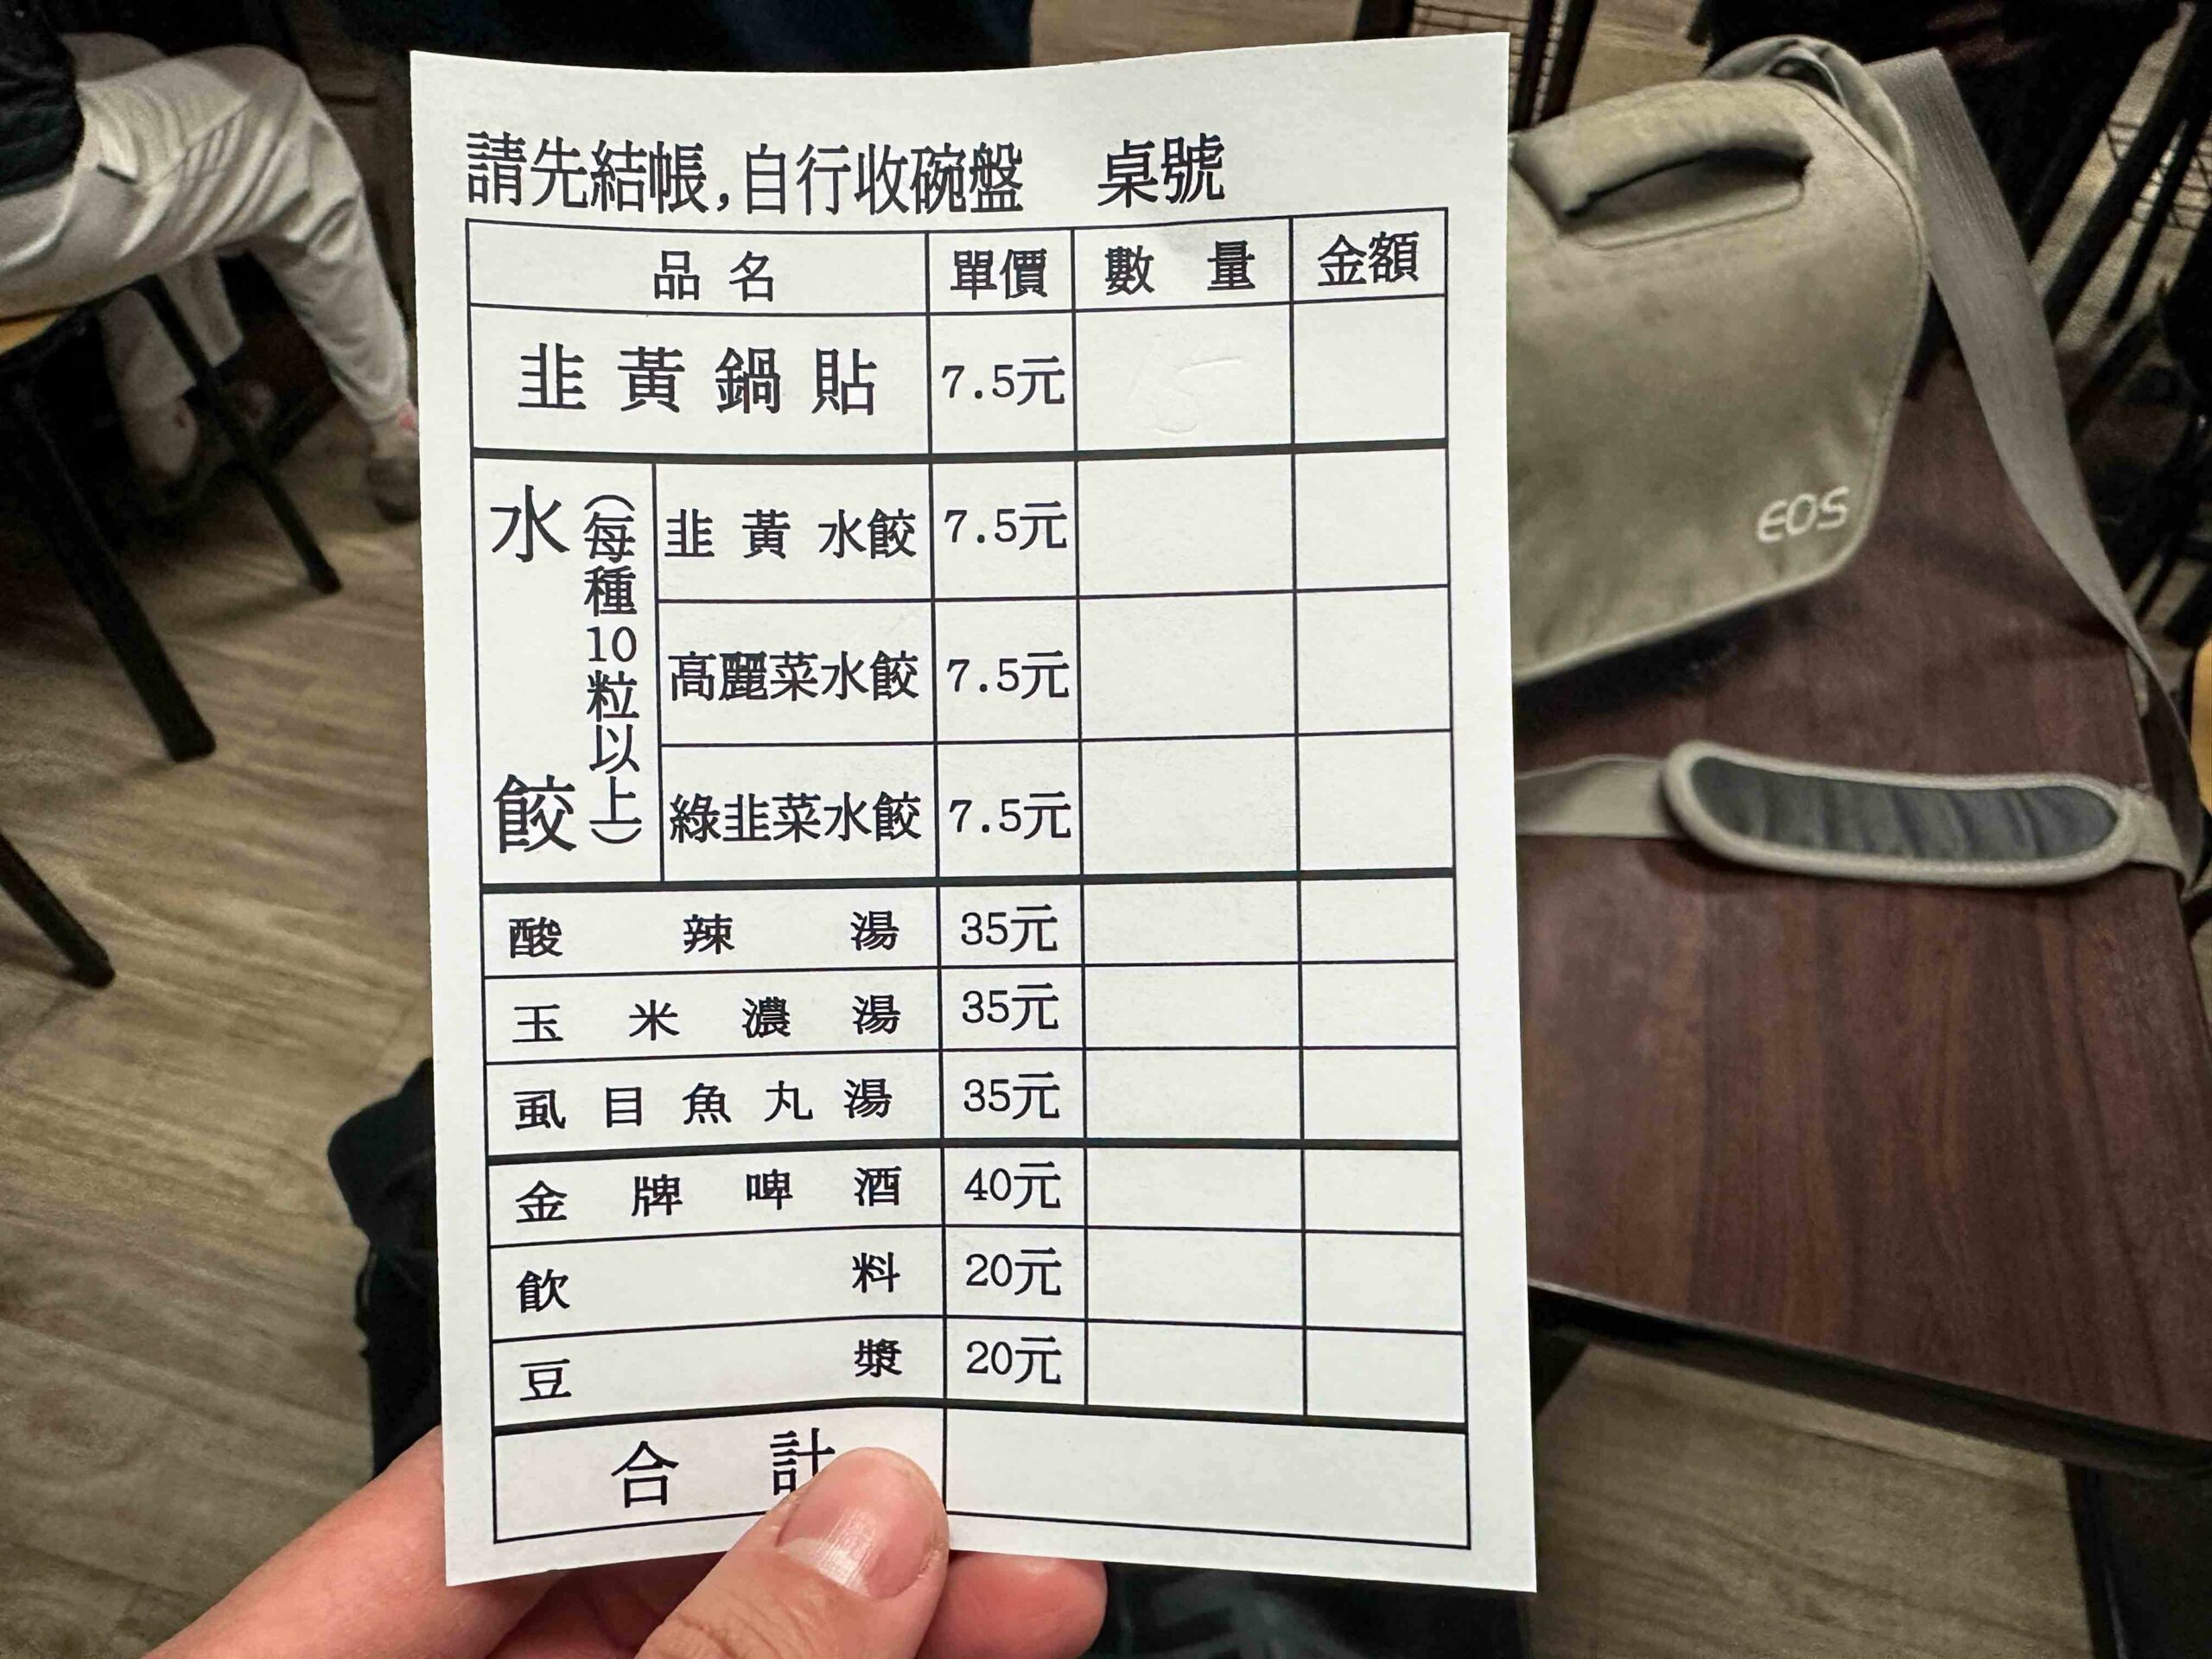 請先結帳,自行收碗盤 桌號
品名 單價 數量 金額
韭黃鍋貼 7.5元
水餃
(每種10粒以上)
韭黃水餃 7.5元
高麗菜水餃 7.5元
綠韭菜水餃 7.5元
酸辣湯 35元
玉米濃湯 35元
虱目魚丸湯 35元
金牌啤酒 40元
飲料 20元
豆漿 20元
合計
EOS